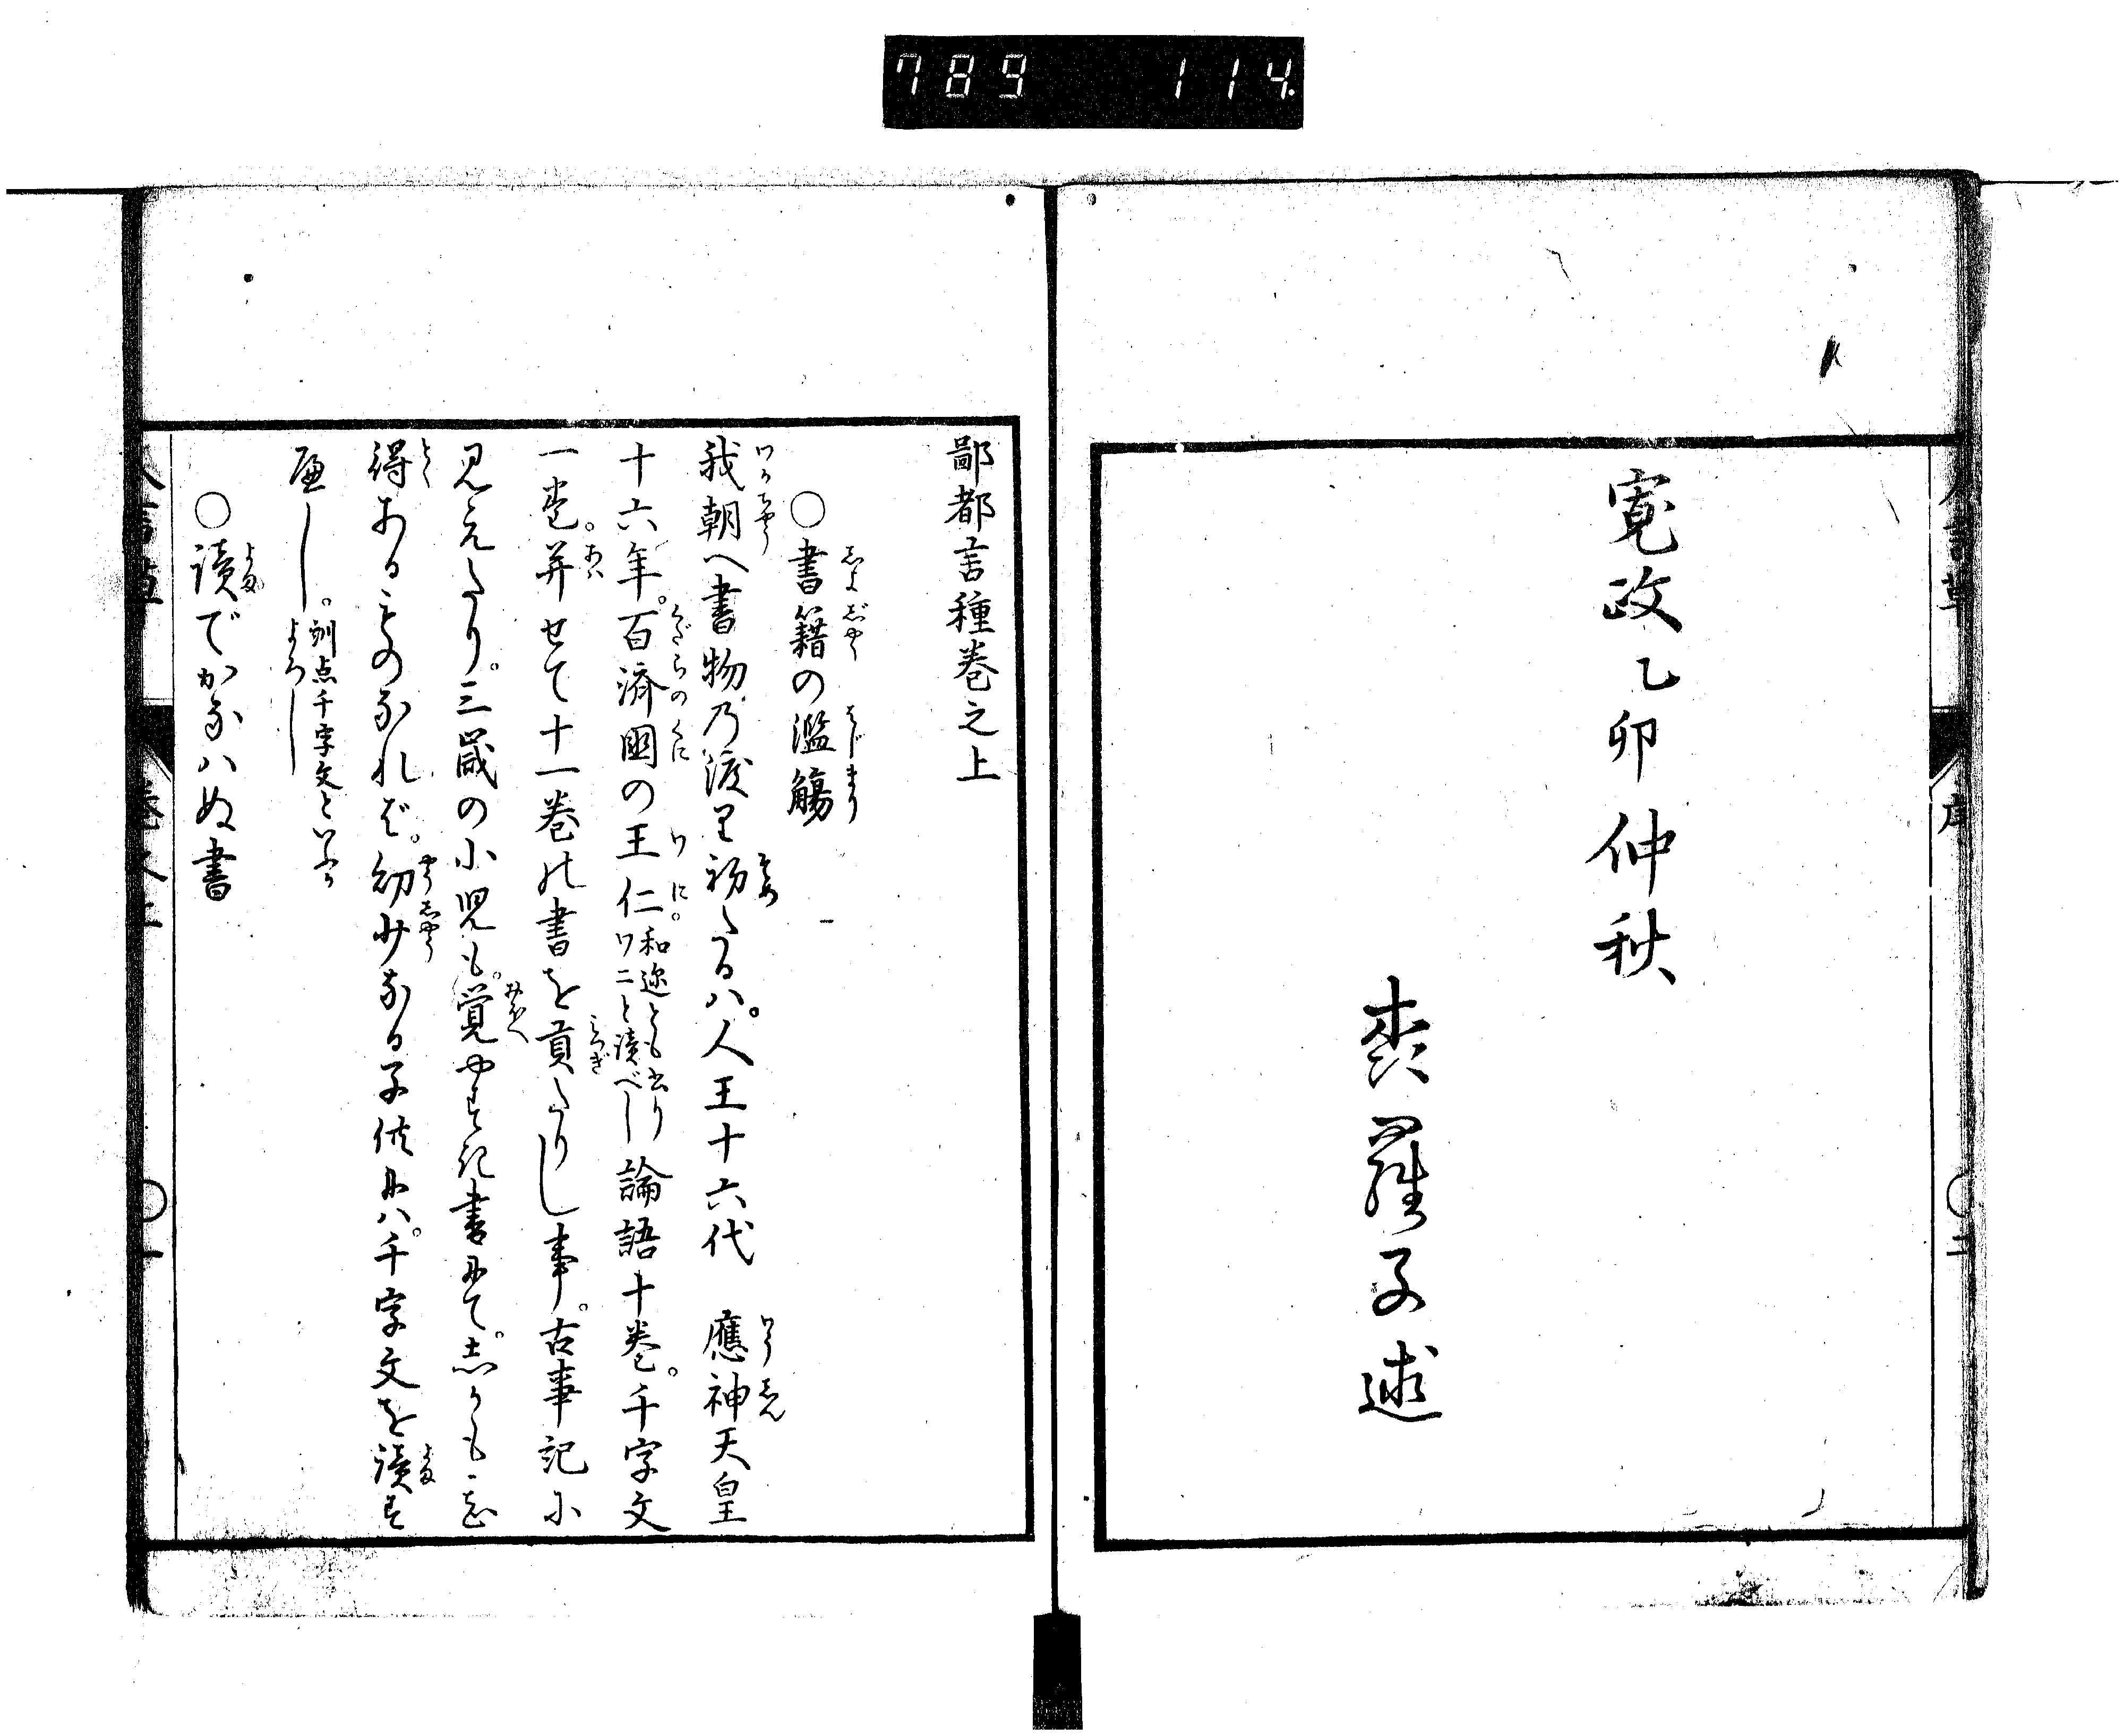 789 114.
寛政乙卯仲秋
羅子述
序
二
鄙都言種巻之上
○書籍の濫觴
我朝へ書物乃渡り初たるハ。人王十六代 應神天皇
十六年。百済國の王仁。和迩とも書りワニと讀べし 論語十巻。千字文
一巻。并せて十一巻の書を貢たりし事。古事記に
見えたり。三歳の小児も。覚やすき書にて。志かも
得あるものなれば。幼少なる子供にハ。千字文を讀す
べし。訓点千字文といふがよろし
○讀でかなハぬ書